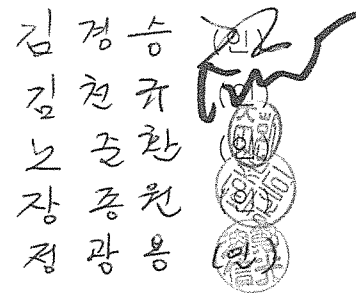 김 경 승 (인)
김 천 규 (인)
노 준 환 (인)
장 종 원 (인)
정 광 용 (인)